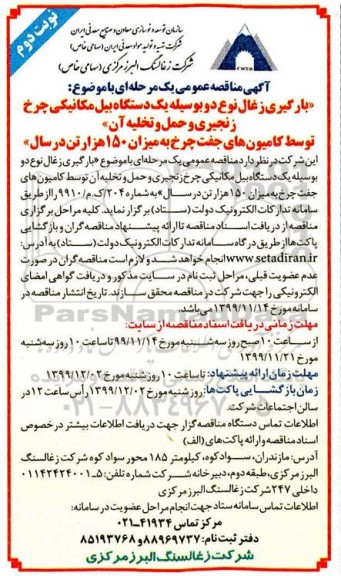 نوبت دوم
سازمان توسعه و نوسازی معادن و صنایع معدنی ایران
شرکت تهیه و تولید مواد معدنی ایران (سهامی خاص)
شرکت زغالسنگ البرز مرکزی (سهامی خاص)
آگهی مناقصه عمومی یک مرحله‌ای با موضوع:
«بارگیری زغال نوع دو بوسیله یک دستگاه بیل مکانیکی چرخ
زنجیری و حمل و تخلیه آن»
توسط کامیون‌های جفت چرخ به میزان ۱۵۰ هزار تن در سال»
این شرکت در نظر دارد مناقصه عمومی یک مرحله‌ای با موضوع «بارگیری زغال نوع دو
بوسیله یک دستگاه بیل مکانیکی چرخ زنجیری و حمل و تخلیه آن توسط کامیون های
جفت چرخ به میزان ۱۵۰ هزار تن در سال» به شماره ۲۰۴/ک.م/۹۹۱۰ را از طریق
سامانه تدارکات الکترونیک دولت (ستاد) برگزار نماید. کلیه مراحل برگزاری
مناقصه از دریافت اسناد مناقصه تا ارائه پیشنهاد مناقصه گران و بازگشایی
پاکت‌ها از طریق درگاه سامانه تدارکات الکترونیک دولت (ستاد) به آدرس:
www.setadiran.ir انجام خواهد شد و لازم است مناقصه گران در صورت
عدم عضویت قبلی، مراحل ثبت نام در سایت مذکور و دریافت گواهی امضای
الکترونیکی را جهت شرکت در مناقصه محقق سازند. تاریخ انتشار مناقصه در
سامانه مورخ ۱۳۹۹/۱۱/۱۴ می‌باشد.
مهلت زمانی دریافت اسناد مناقصه از سایت:
از ساعت ۱۰ صبح روز سه‌شنبه مورخ ۹۹/۱۱/۱۴ تا ساعت ۱۰ روز سه‌شنبه
مورخ ۱۳۹۹/۱۱/۲۱
مهلت زمان ارائه پیشنهاد: تا ساعت ۱۰ روز شنبه مورخ ۱۳۹۹/۱۲/۰۲
زمان بازگشایی پاکت‌ها: روز شنبه مورخ ۱۳۹۹/۱۲/۰۲ رأس ساعت ۱۲ در
سالن اجتماعات شرکت.
اطلاعات تماس دستگاه مناقصه گزار جهت دریافت اطلاعات بیشتر در خصوص
اسناد مناقصه و ارائه پاکت‌های (الف)
آدرس: مازندران، سوادکوه، کیلومتر ۱۸۵ محور سواد کوه شرکت زغالسنگ
البرز مرکزی، طبقه دوم، دبیرخانه شرکت شماره تلفن: ۵-۰۱۱۴۲۴۲۴۰۰۱
داخلی ۲۴۷ شرکت زغالسنگ البرز مرکزی
اطلاعات تماس سامانه ستاد جهت انجام مراحل عضویت در سامانه:
مرکز تماس ۴۱۹۳۴-۰۲۱
دفتر ثبت نام: ۸۸۹۶۹۷۳۷ و ۸۵۱۹۳۷۶۸
شرکت زغالسنگ البرز مرکزی